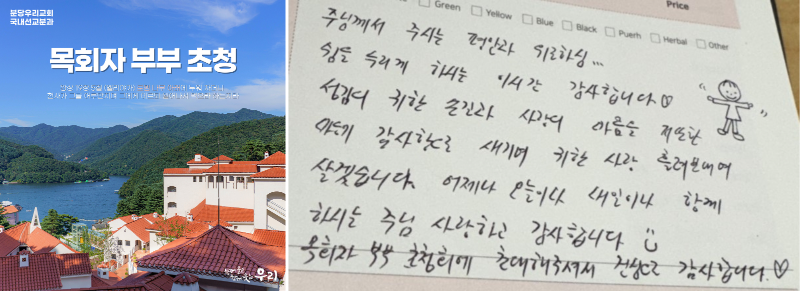 분당우리교회
국내선교분과
목회자 부부 초청
우리
Green
Yellow
Blue
Black
Puerh
Herbal
Other
Price
주님께서 주시는 평안과 위로하심...
쉼을 누리게 하시는 이시간 감사합니다♡
섬김의 귀한 손길과 사랑의 마음을
감사함으로 새기며 귀한 사랑 흘려보내며
살겠습니다. 어제나 오늘이나 내일이나 함께
하시는 주님 사랑하고 감사합니다
목회자 부부 초청회에 초대해주셔서 진심으로 감사합니다.♡